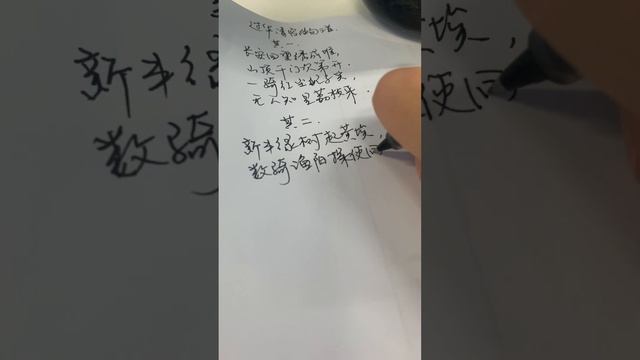 过华清宫绝句三首.
其一.
长安回望绣成堆,
山顶千门次第开.
一骑红尘妃子笑,
无人知是荔枝来.
其二.
新丰绿树起黄埃,
数骑渔阳探使回